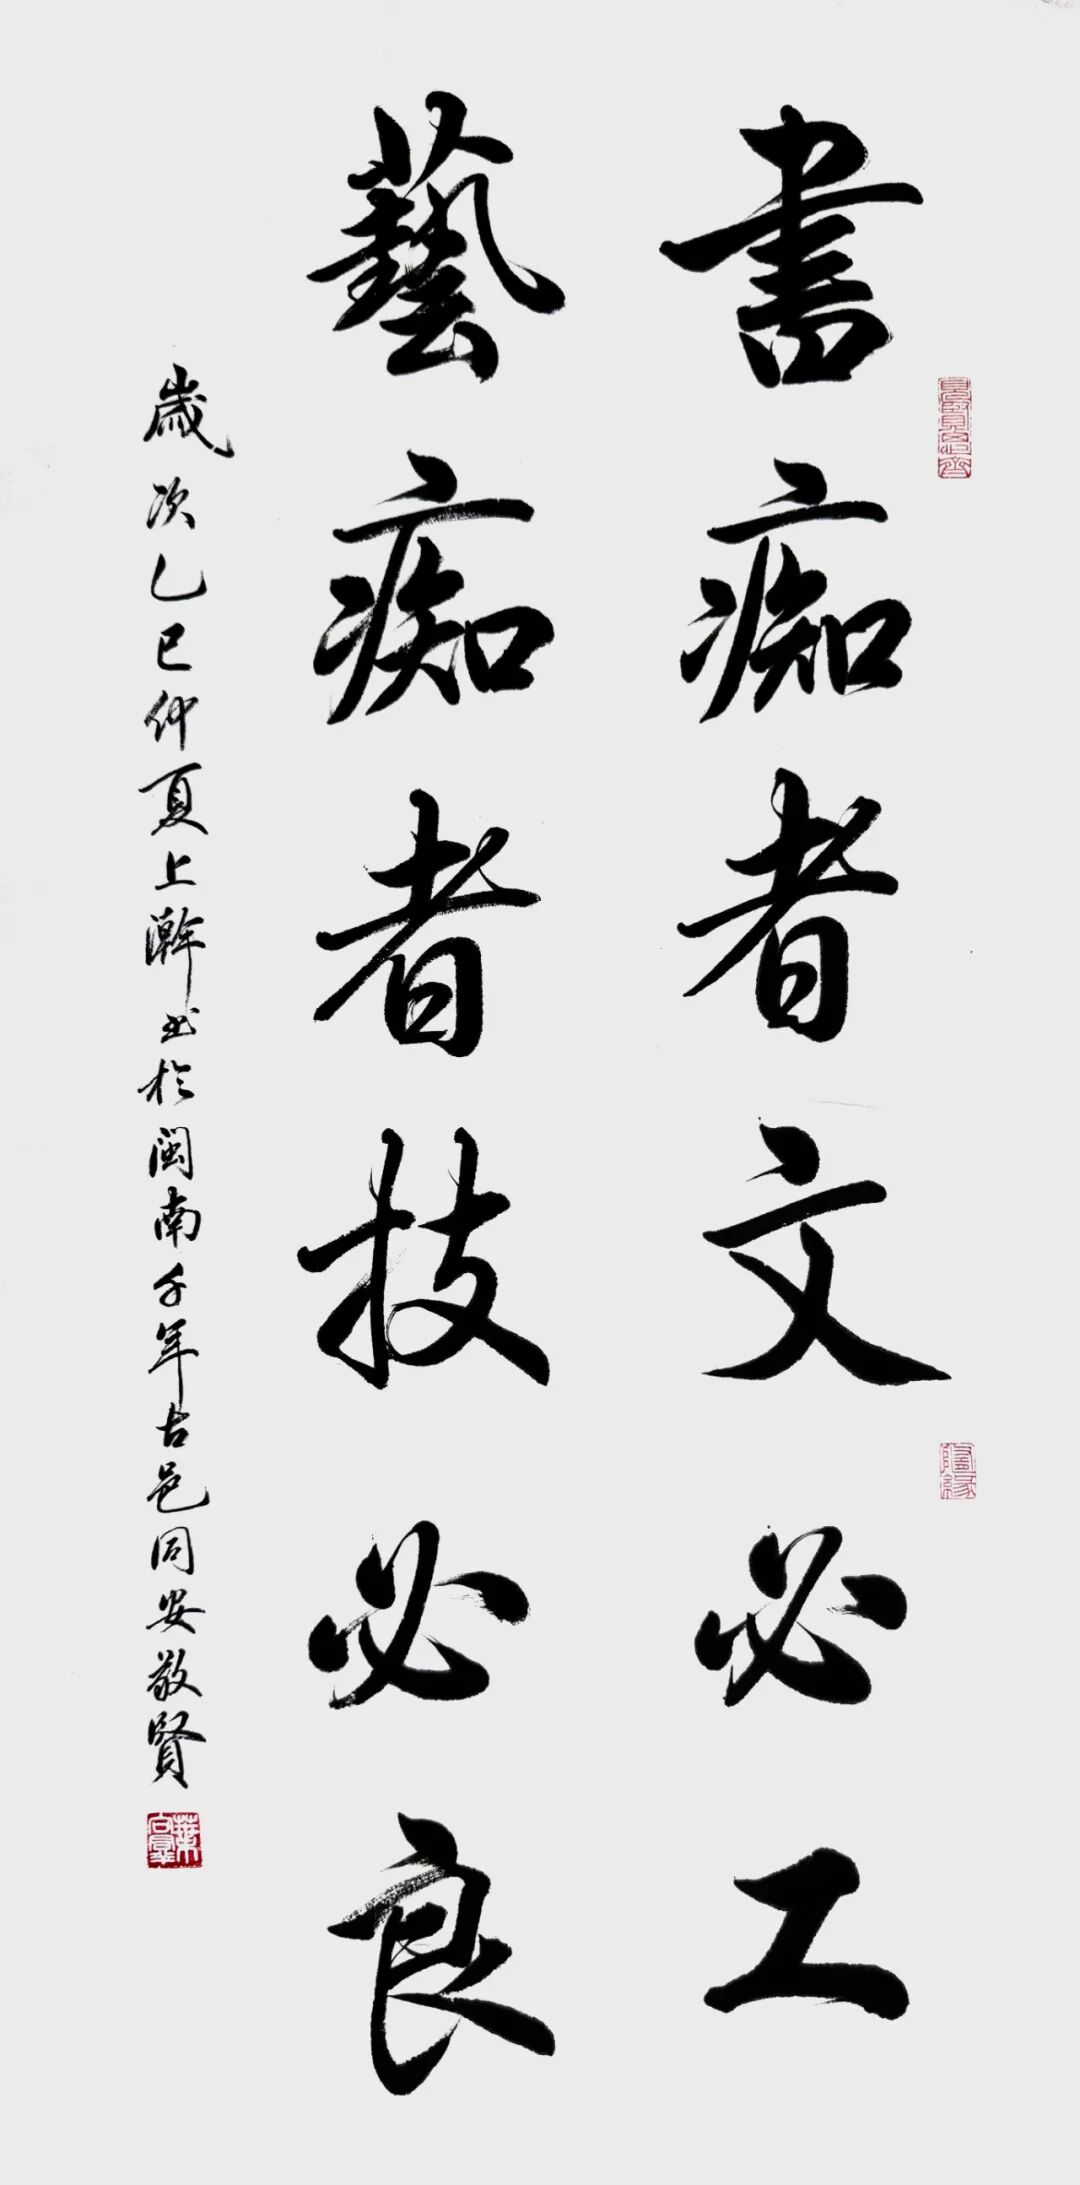 書痴者文必工
藝痴者技必良
歲次乙巳仲夏上澣书於闽南千年古邑同安敬賢